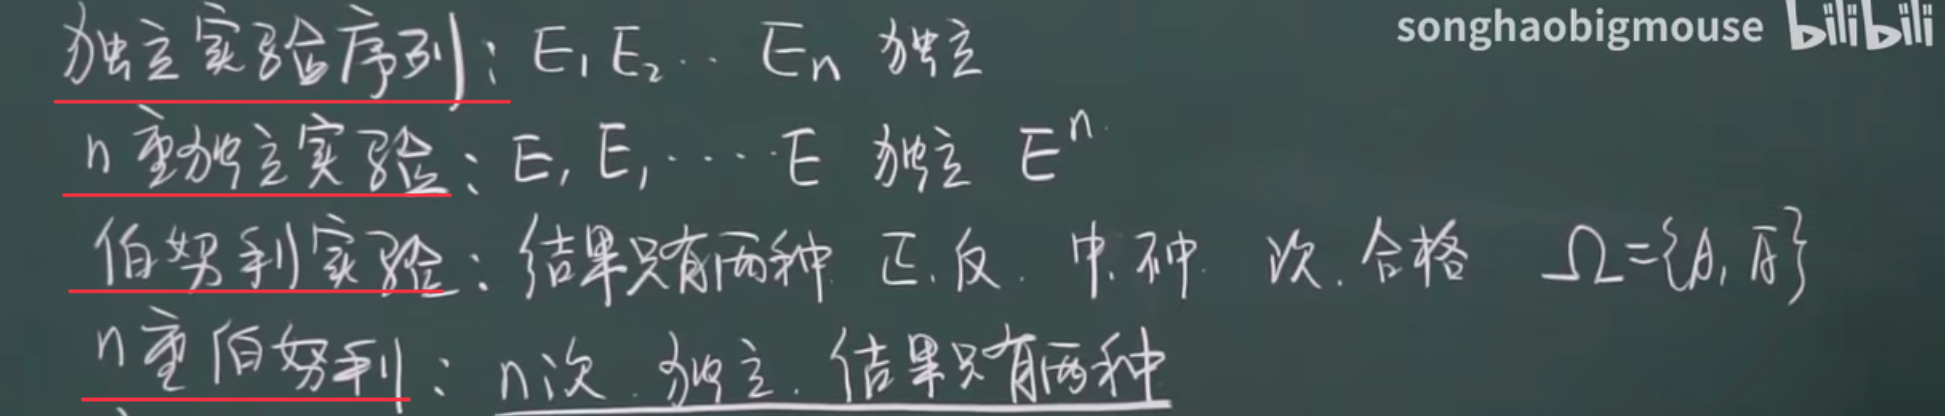 songhaobigmouse bilibili
独立实验序列: E₁ E₂ ·· Eₙ 独立
n重独立实验: E, E, ····· E 独立 Eⁿ
伯努利实验: 结果只有两种 正.反. 中.不中. 次.合格 Ω={A, Ā}
n重伯努利: n次.独立.结果只有两种